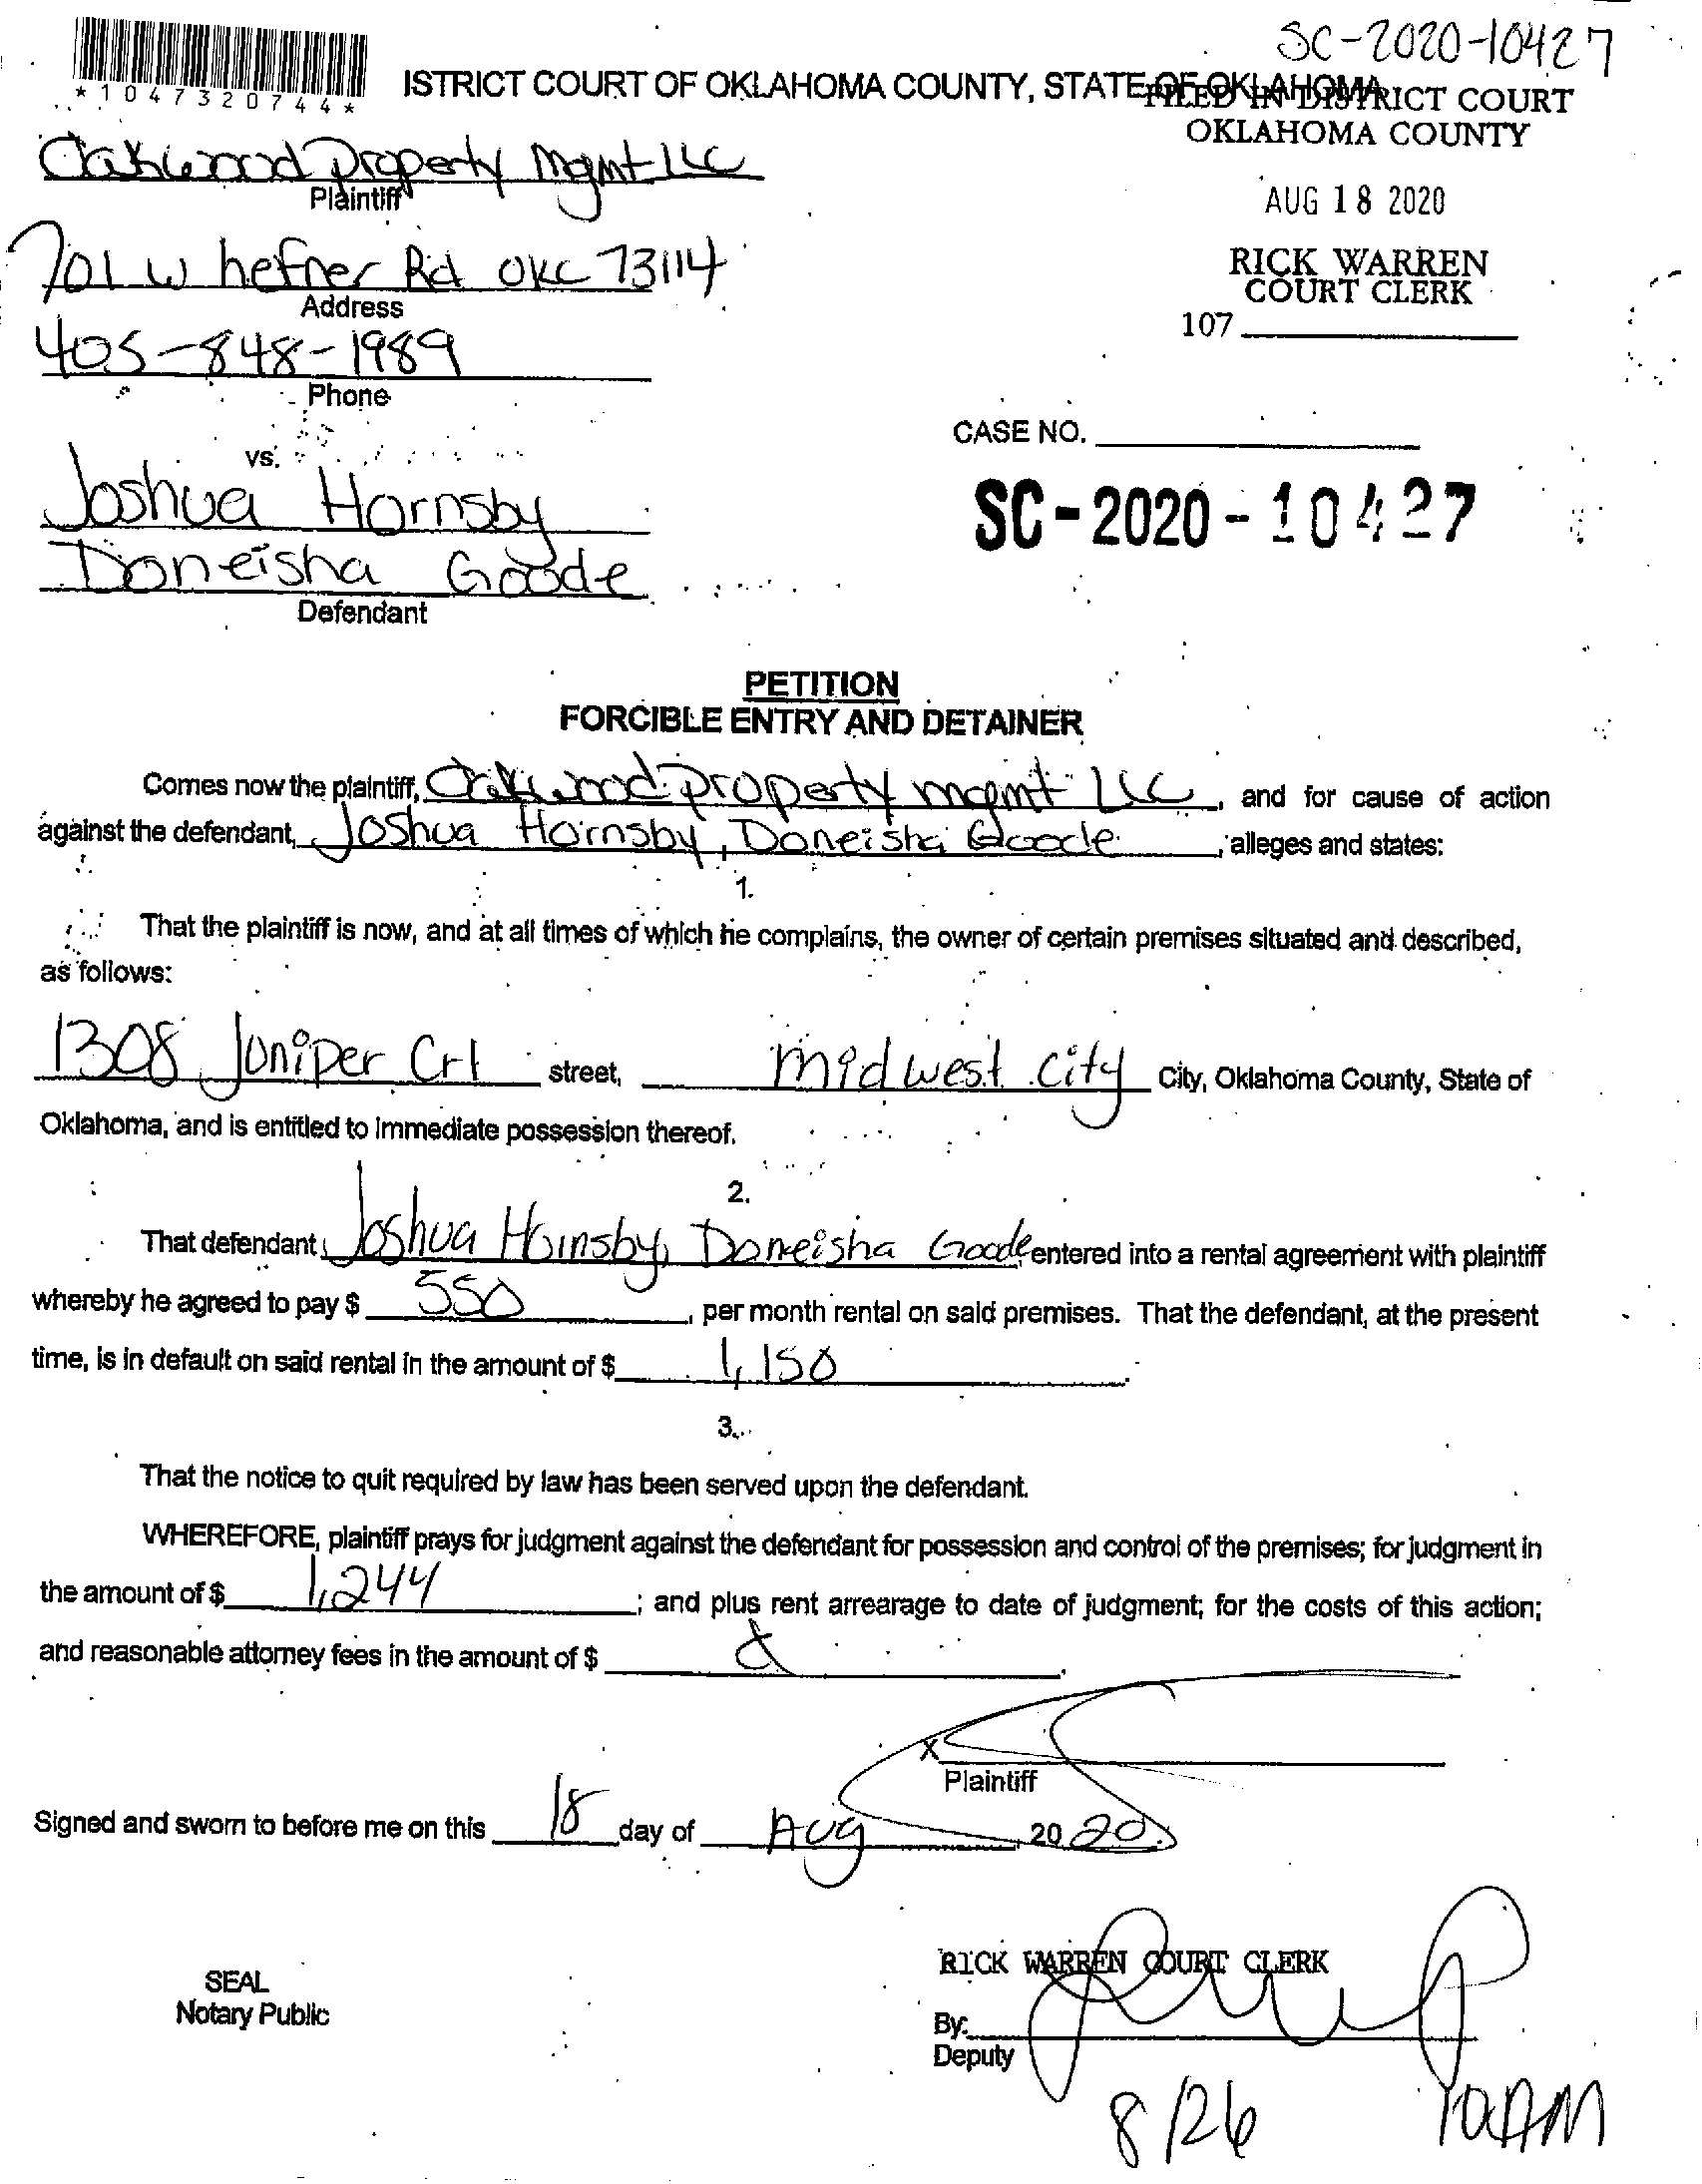 SC-2020-10427
*1047320744*
ISTRICT COURT OF OKLAHOMA COUNTY, STATE OF OKLAHOMA
FILED IN DISTRICT COURT
OKLAHOMA COUNTY
Oakwood Property Mgmt LLC
Plaintiff
AUG 18 2020
701 W hefner Rd OKC 73114
Address
RICK WARREN
COURT CLERK
107
405-848-1989
Phone
CASE NO.
vs.
Joshua Hornsby
SC-2020-10427
Doneisha Goode
Defendant
PETITION
FORCIBLE ENTRY AND DETAINER
Comes now the plaintiff, Oakwood property mgmt LLC, and for cause of action
against the defendant, Joshua Hornsby, Doneisha Goode, alleges and states:
1.
That the plaintiff is now, and at all times of which he complains, the owner of certain premises situated and described,
as follows:
1308 Juniper Crt street, midwest city City, Oklahoma County, State of
Oklahoma, and is entitled to immediate possession thereof.
2.
That defendant, Joshua Hornsby, Doneisha Goode, entered into a rental agreement with plaintiff
whereby he agreed to pay $ 550, per month rental on said premises. That the defendant, at the present
time, is in default on said rental in the amount of $ 1,150.
3.
That the notice to quit required by law has been served upon the defendant.
WHEREFORE, plaintiff prays for judgment against the defendant for possession and control of the premises; for judgment in
the amount of $ 1,244; and plus rent arrearage to date of judgment; for the costs of this action;
and reasonable attorney fees in the amount of $
X
Plaintiff
Signed and sworn to before me on this 18 day of Aug, 20 20.
RICK WARREN COURT CLERK
SEAL
Notary Public
By:
Deputy
8/26 10AM